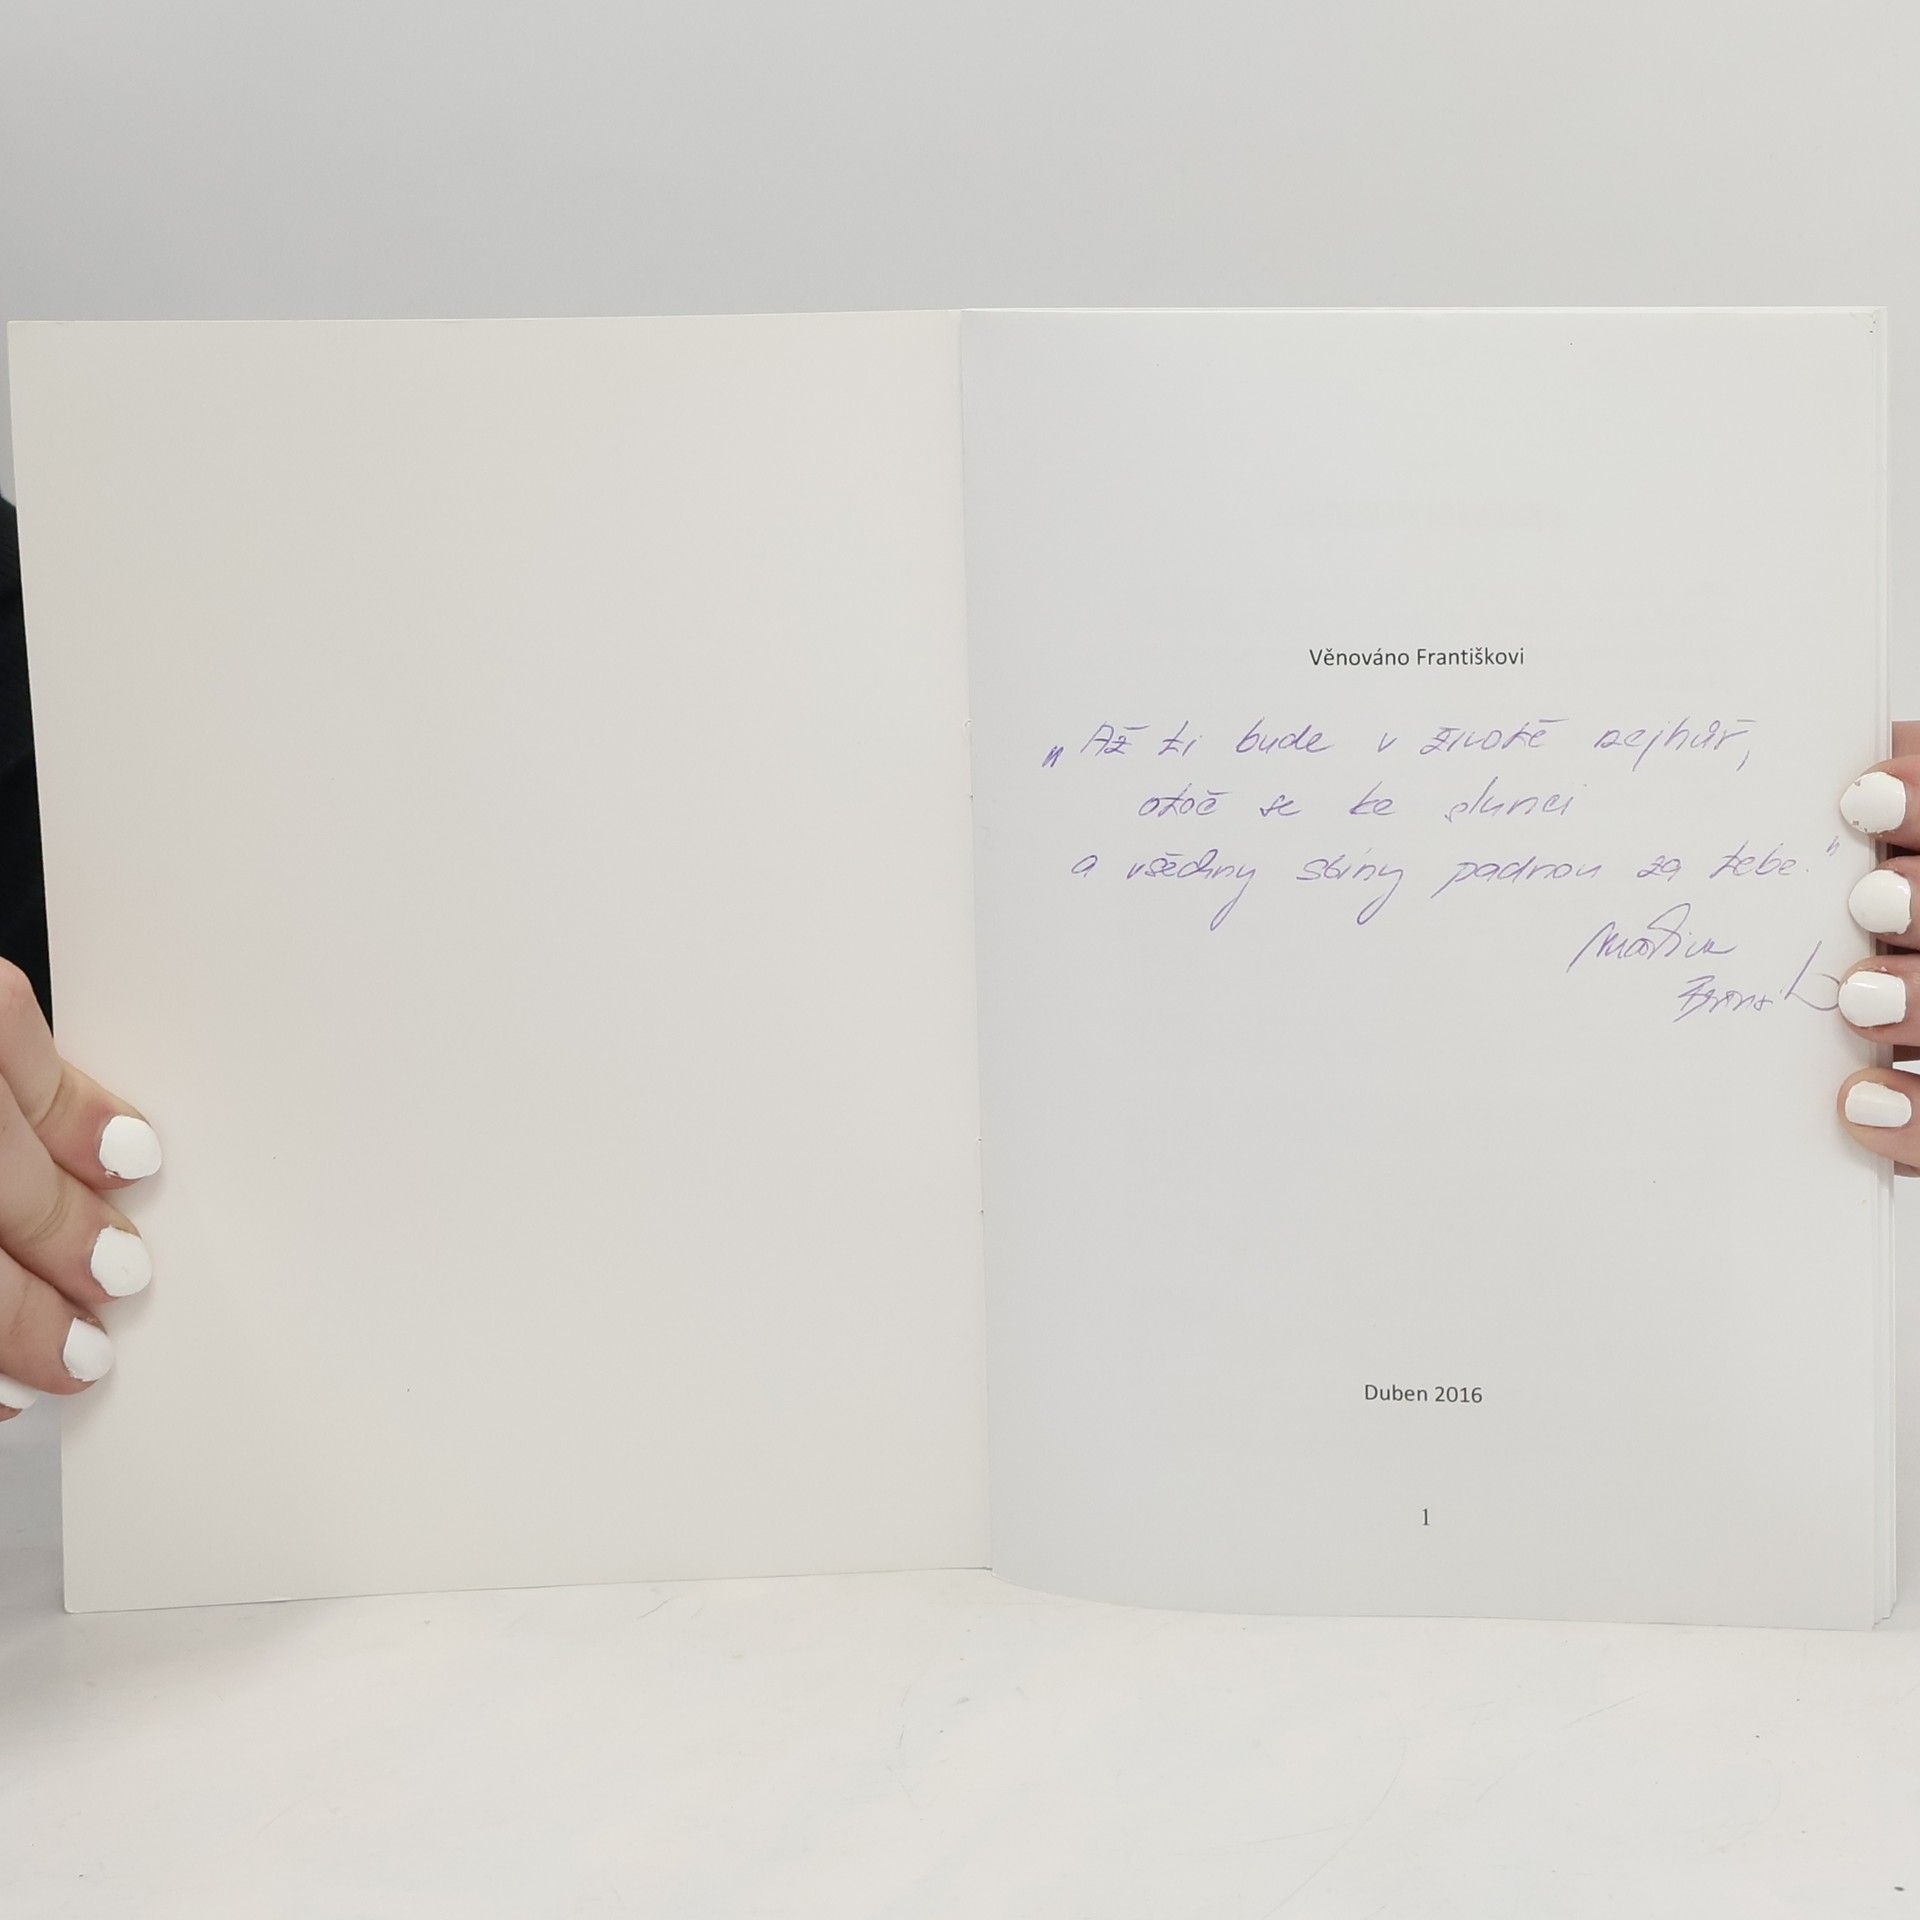 Věnováno Františkovi
„Až ti bude v životě nejhůř,
otoč se ke slunci
a všechny stíny padnou za tebe."
Martina
Duben 2016
1